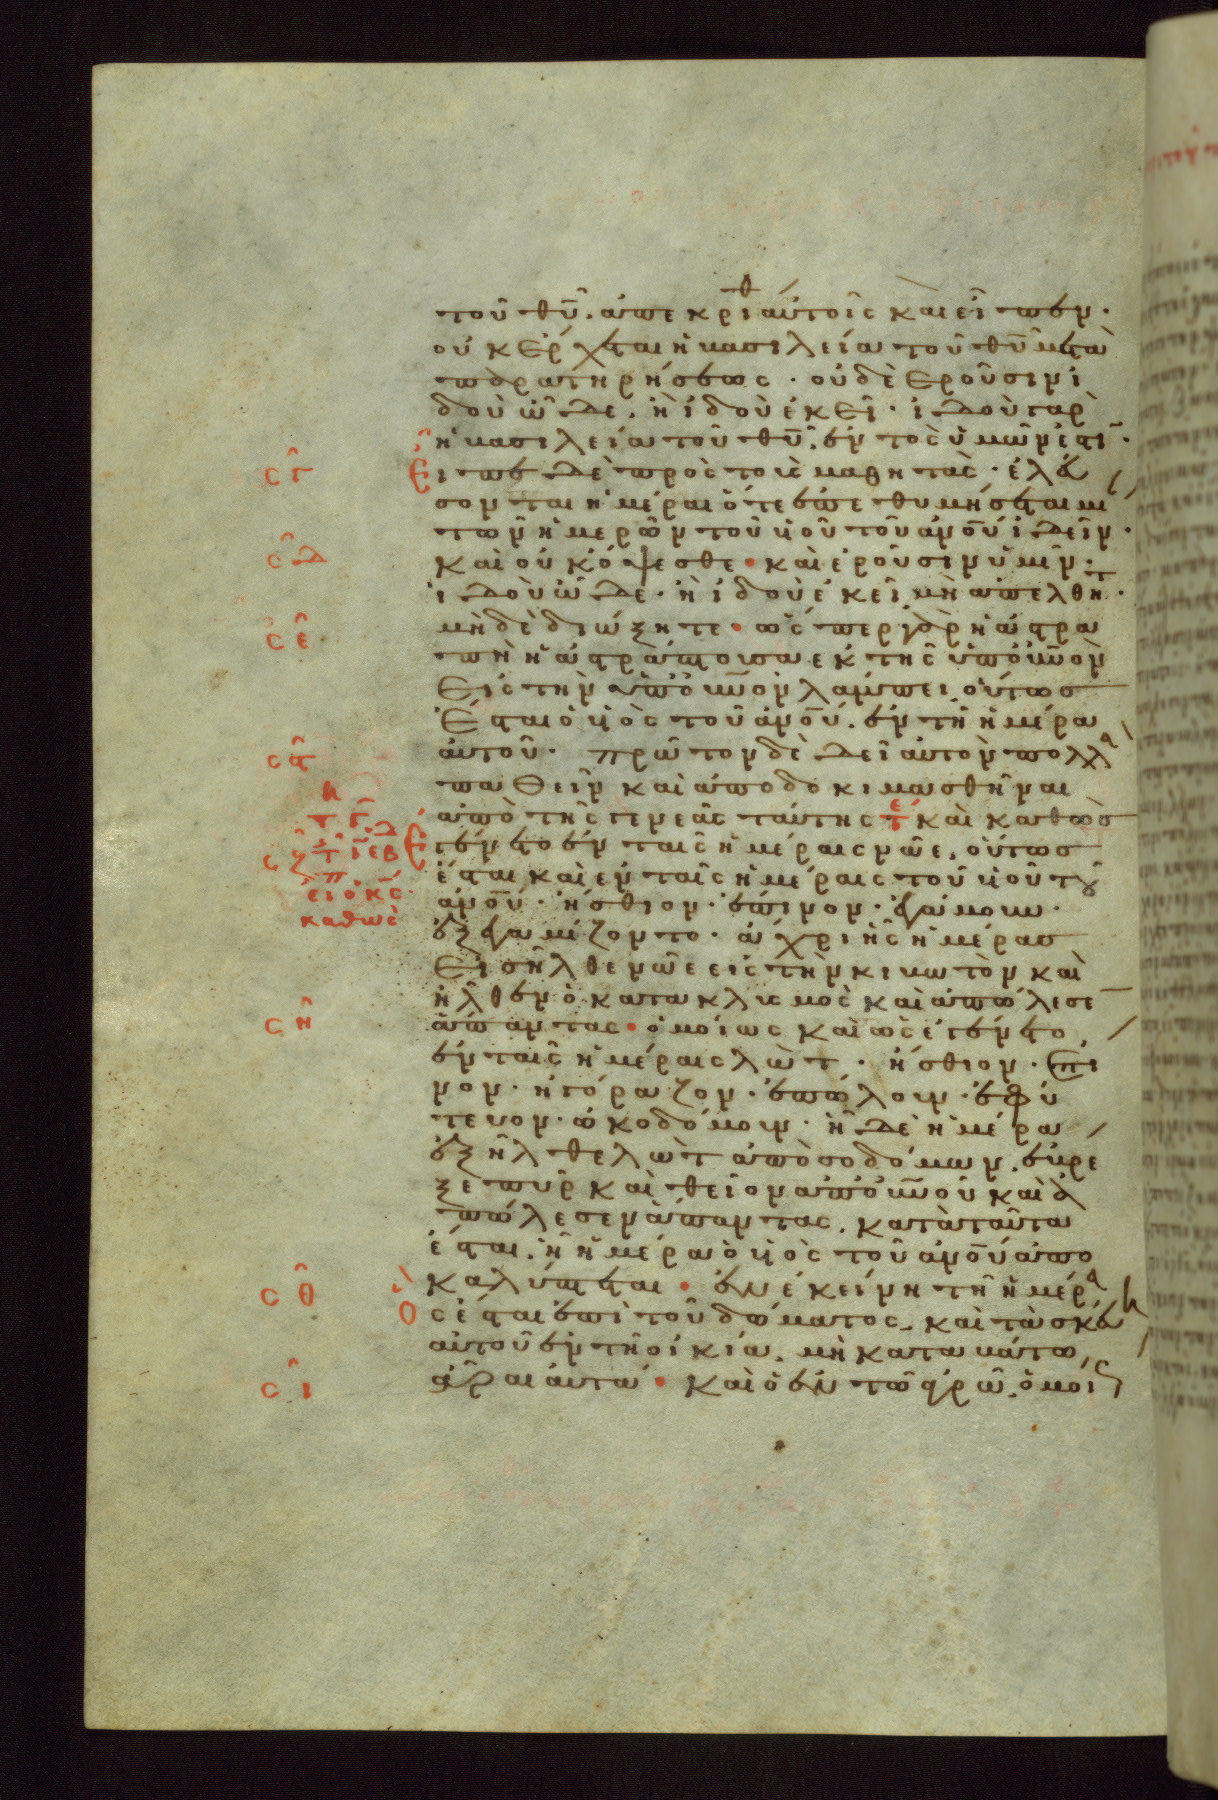 τοῦ θ̅υ̅. ἀπεκρίθ αὐτοῖς καὶ εἶπεν·
οὐκ ἔρχεται ἡ βασιλεία τοῦ θ̅υ̅ μετὰ
παρατηρήσεως· οὐδὲ ἐροῦσιν ἰ
δοὺ ὧδε. ἢ ἰδοὺ ἐκεῖ· ἰδοὺ γὰρ
ἡ βασιλεία τοῦ θ̅υ̅. ἐντὸς ὑμῶν ἐστι̅·
σ̅γ Εἶπε δὲ πρὸς τοὺς μαθητάς· ἐλεύ
σονται ἡμέραι ὅτε ἐπεθυμήσεται μί
τῶν ἡμερῶν τοῦ υἱοῦ τοῦ ἀν̅ο̅υ̅ ἰδεῖν·
σ̅δ καὶ οὐκ ὄψεσθε· καὶ ἐροῦσιν ὑμῖν·
ἰδοὺ ὧδε· ἢ ἰδοὺ ἐκεῖ μὴ ἀπέλθητ·
σ̅ε μηδὲ διώξητε· ὥσπερ γὰρ ἡ ἀστρα
πὴ ἡ ἀστράπτουσα ἐκ τῆς ὑπὸ οὐ̅ν̅ὸν
εἰς τὴν ὑπὸ οὐ̅ν̅ὸν λάμπει οὕτως
ἔσται ὁ υἱὸς τοῦ ἀν̅ο̅υ̅. ἐν τῇ ἡμέρα
σ̅ϛ αὐτοῦ. πρῶτον δὲ δεῖ αὐτὸν πολλὰ
παθεῖν καὶ ἀποδοκιμασθῆναι
ἀπὸ τῆς γενεᾶς ταύτης τε καὶ καθὼς
σ̅ζ Ἐγένετο ἐν ταῖς ἡμέραις νῶε. οὕτως
εἰ ὁ κ̅ς̅
καθὼς
ἔσται καὶ ἐν ταῖς ἡμέραις τοῦ υἱοῦ τοῦ
ἀν̅ο̅υ̅· ἤσθιον· ἔπινον· ἐγάμουν·
ἐξεγαμίζοντο· ἄχρι ἧς ἡμέρας
εἰσῆλθε νῶε εἰς τὴν κιβωτὸν καὶ
ἦλθεν ὁ κατακλυσμὸς καὶ ἀπώλεσε
σ̅η ἅπαντας· ὁμοίως καὶ ὡς ἐγένετο
ἐν ταῖς ἡμέραις λώτ· ἤσθιον· ἔπι
νον· ἠγόραζον· ἐπώλουν· ἐφύ
τευον· ὠκοδόμουν· ἧ δὲ ἡμέρα
ἐξῆλθε λὼτ ἀπὸ σοδόμων. ἔβρε
ξε πῦρ καὶ θεῖον ἀπὸ οὐ̅ν̅οῦ καὶ ἀ
πώλεσεν ἅπαντας. κατὰ ταῦτα
ἔσται. ἧ ἡμέρα ὁ υἱὸς τοῦ ἀν̅ο̅υ̅ ἀπο
σ̅θ καλύπτεται· ἐν ἐκείνη τῇ ἡμέρα
ὃς ἔσται ἐπὶ τοῦ δώματος. καὶ τὰ σκεύ
αὐτοῦ ἐν τῇ οἰκία. μὴ καταβάτω
σ̅ι ἆραι αὐτά· καὶ ὁ ἐν τῶ ἀγρῶ. ὁμοί